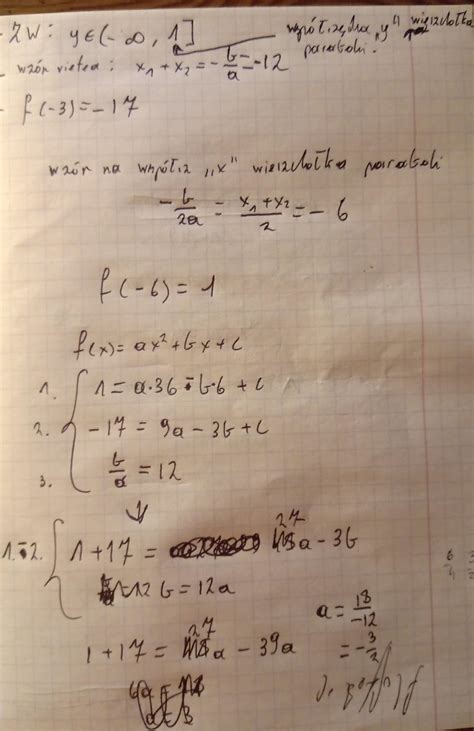 - ZW: y∈(-∞, 1] współrzędna „y" wierzchołka paraboli.
- wzór vietea: x₁+x₂=-b/a=-12
- f(-3)=-17
wzór na współrz „x" wierzchołka paraboli
-b/2a = x₁+x₂/2 = -6
f(-6)=1
f(x)=ax²+bx+c
1. 1=a·36-b·6+c
2. -17=9a-3b+c
3. b/a=12
1.-2. 1+17= 27a-3b
b=12a
1+17= 27a-39a
a=18/-12
=-3/2